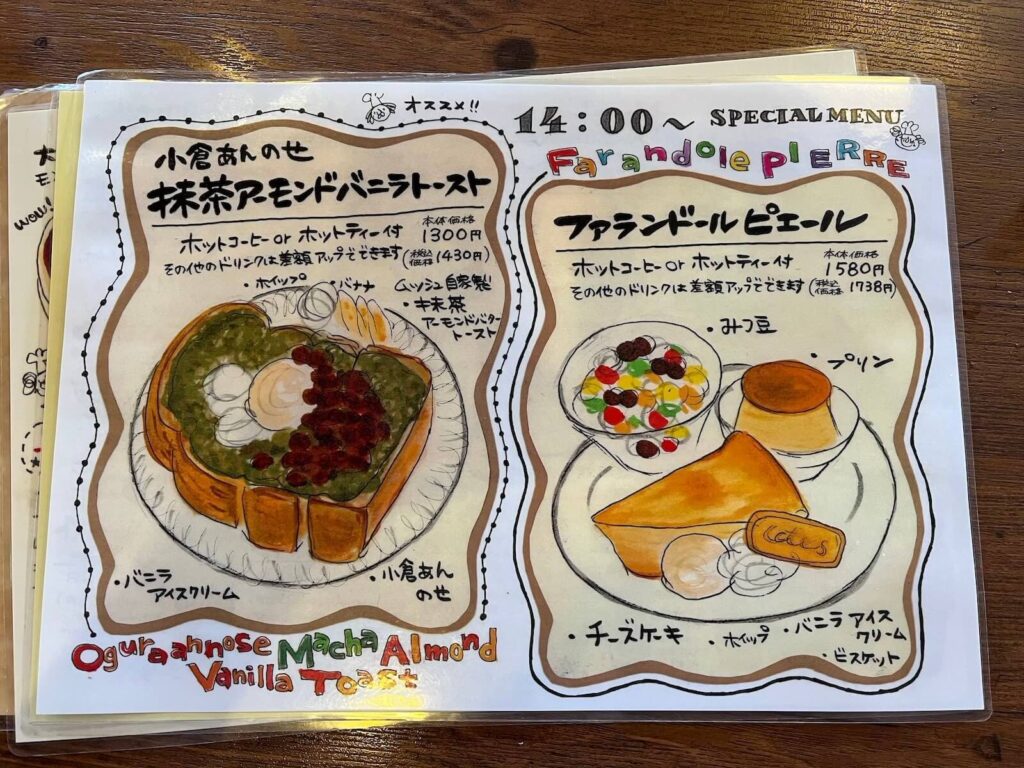 オススメ!!
小倉あんのせ
抹茶アーモンドバニラトースト
ホットコーヒー or ホットティー付
本体価格
1300円
その他のドリンクは差額アップでできます (税込価格 1430円)
・ホイップ
・バナナ
ムッシュ自家製
・抹茶
アーモンドバター
トースト
・バニラ
アイスクリーム
・小倉あん
のせ
Oguraannose Macha Almond
Vanilla Toast
14:00～ SPECIAL MENU
Farandole PIERRE
ファランドール ピエール
ホットコーヒー or ホットティー付
本体価格
1580円
その他のドリンクは差額アップでできます (税込価格 1738円)
・みつ豆
・プリン
・チーズケーキ
・ホイップ
・バニラ アイス
クリーム
・ビスケット
wow!